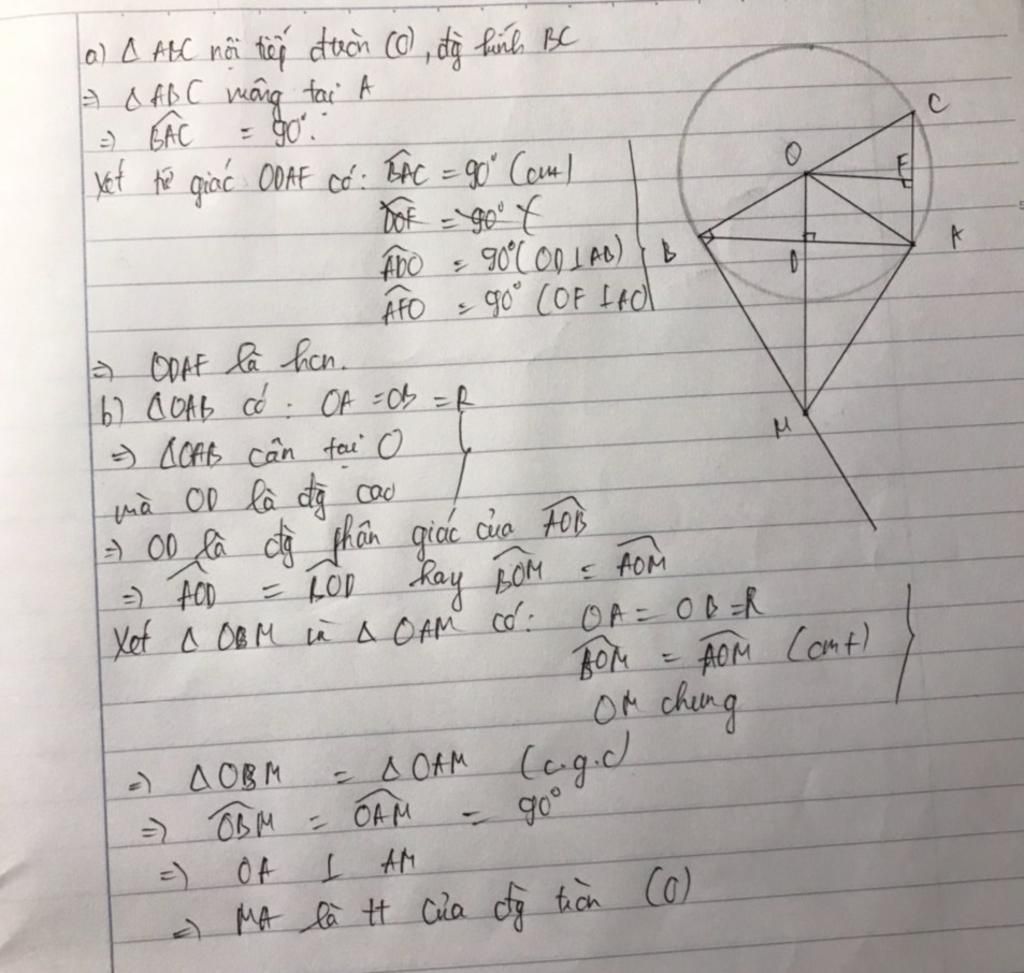 a) Δ ABC nội tiếp đường tròn (O), đg kính BC
=> Δ ABC vuông tại A
=> BAC = 90°
Xét tứ giác ODAF có: BAC = 90° (cmt)
DOF = 90°
ADO = 90° (OD ⊥ AB)
AFO = 90° (OF ⊥ AC)
=> ODAF là hcn.
b) ΔOAB có: OA = OB = R
=> ΔOAB cân tại O
mà OD là đg cao
=> OD là đg phân giác của AOB
=> AOD = BOD hay BOM = AOM
Xét Δ OBM và Δ OAM có: OA = OB = R
BOM = AOM (cmt)
OM chung
=> Δ OBM = Δ OAM (c.g.c)
=> OBM = OAM = 90°
=> OA ⊥ AM
=> MA là tt của đg tròn (O)
C
O
F
B
D
A
M